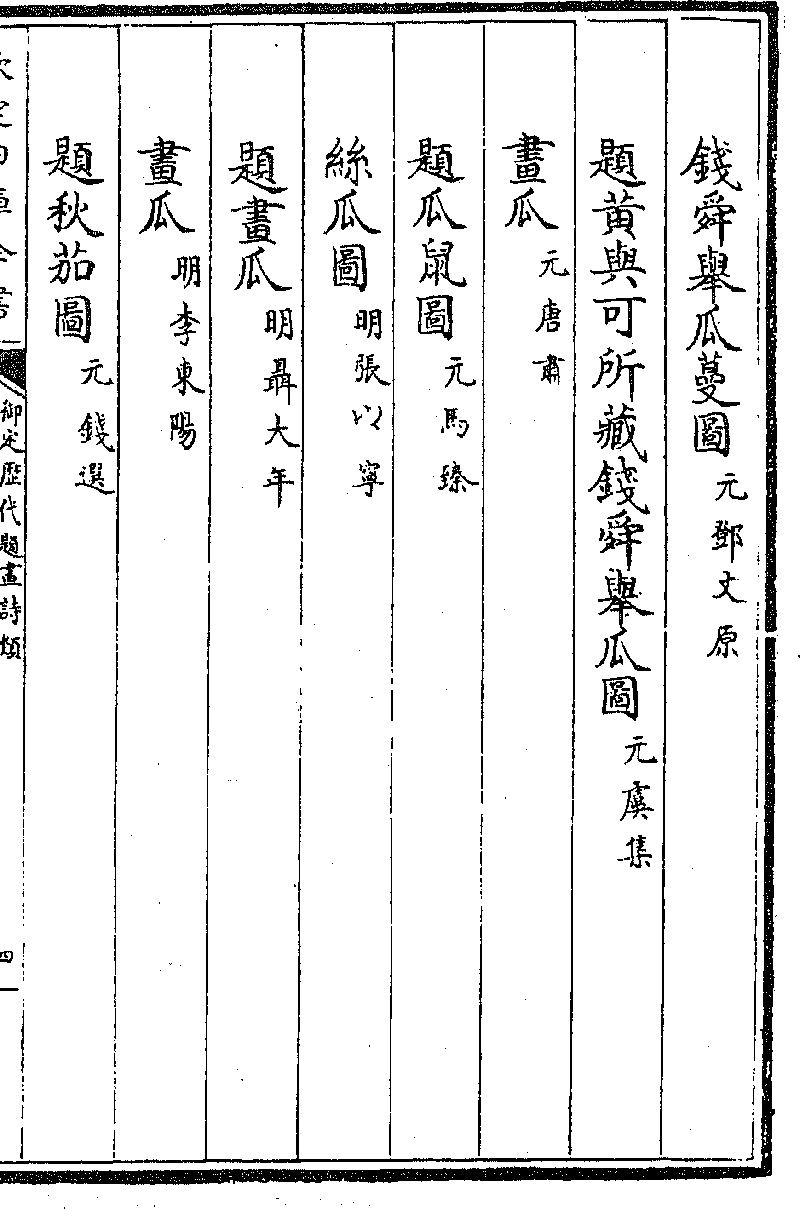 錢舜舉瓜蔓圖 元鄧文原
題黃與可所藏錢舜舉瓜圖 元虞集
畫瓜 元唐肅
題瓜鼠圖 元馬臻
絲瓜圖 明張以寧
題畫瓜 明聶大年
畫瓜 明李東陽
題秋茄圖 元錢選
御定歷代題畫詩類
四